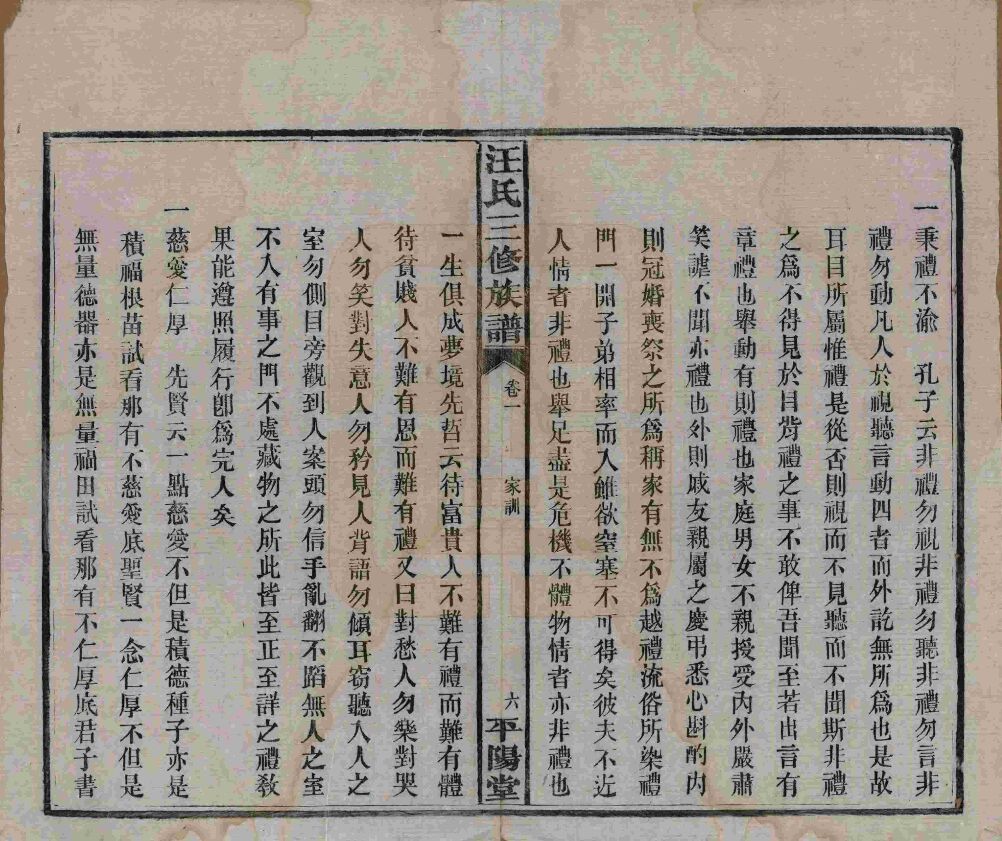 一秉禮不渝　孔子云非禮勿視非禮勿聽非禮勿言非
禮勿動凡人於視聽言動四者而外訖無所爲也是故
耳目所屬惟禮是從否則視而不見聽而不聞斯非禮
之爲不得見於目背禮之事不敢俾吾聞至若出言有
章禮也舉動有則禮也家庭男女不親授受內外嚴肅
笑謔不聞亦禮也外則戚友親屬之慶弔悉心斟酌內
則冠婚喪祭之所爲稱家有無不爲越禮流俗所染禮
門一開子弟相率而入雖欲窒塞不可得矣彼夫不近
人情者非禮也舉足盡是危機不體物情者亦非禮也
汪氏三修族譜
卷一
家訓
六
平陽堂
一生俱成夢境先哲云待富貴人不難有禮而難有體
待貧賤人不難有恩而難有禮又曰對愁人勿樂對哭
人勿笑對失意人勿矜見人背語勿傾耳窃聽入人之
室勿側目旁觀到人案頭勿信手亂翻不蹈無人之室
不入有事之門不處藏物之所此皆至正至詳之禮教
果能遵照履行卽爲完人矣
一慈愛仁厚　先賢云一點慈愛不但是積德種子亦是
積福根苗試看那有不慈愛底聖賢一念仁厚不但是
無量德器亦是無量福田試看那有不仁厚底君子書